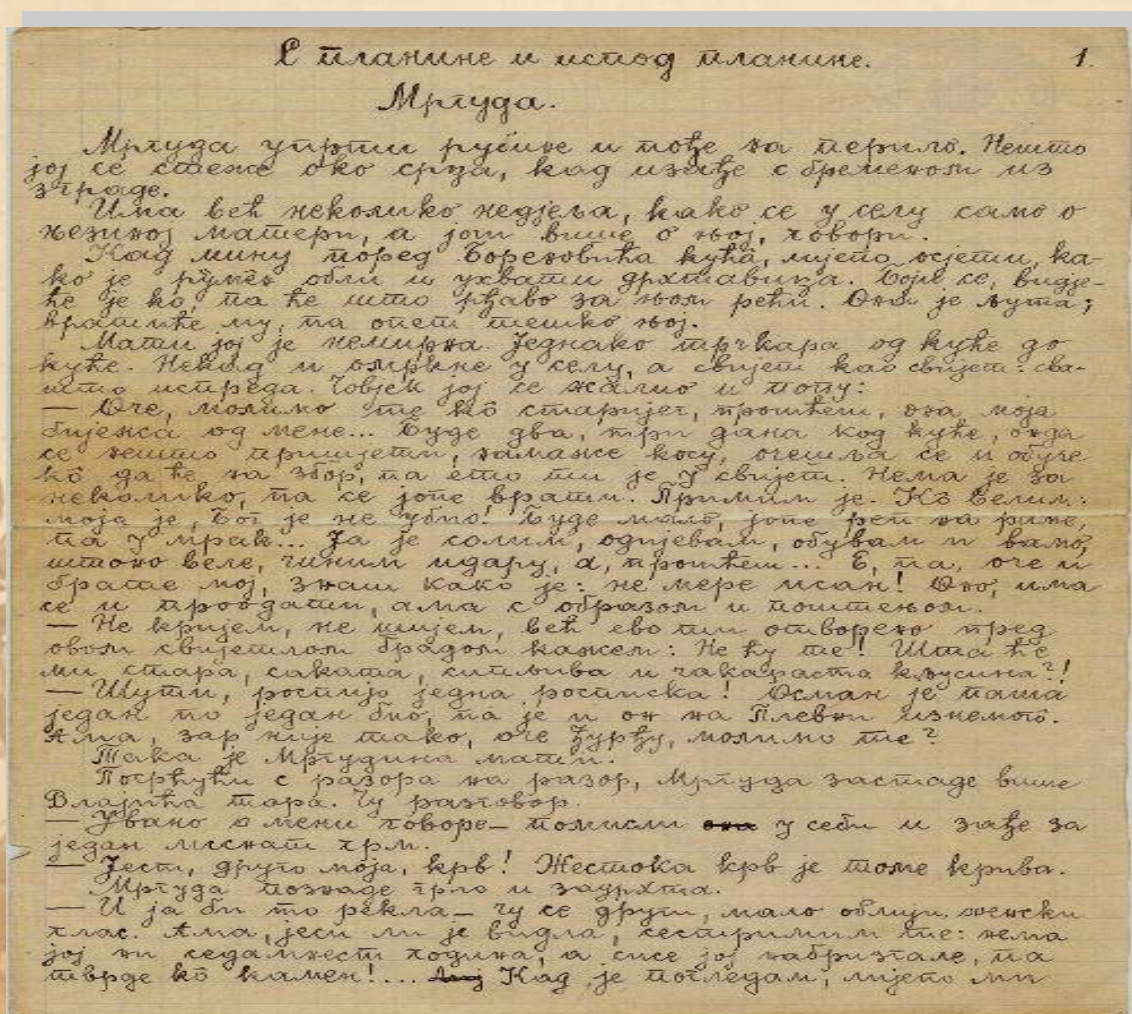 С планине и испод планине. 1.
Мргуда.
Мргуда упрти рубине и пође на перило. Нешто
јој се стеже око срца, кад изађе с бременом из
зграде.
Има већ неколико недјеља, како се у селу само о
њезиној матери, а још више о њој, говори.
Кад мину поред Бореновића кућа, лијепо осјети, ка-
ко је румен обли и ухвати дрхтавица. Боји се, видје-
ће је ко, па ће што рђаво за њом рећи. Она је љута;
вратиће му, па опет тешко њој.
Мати јој је немирна. Једнако трчкара од куће до
куће. Некад и омркне у селу, а свијет као свијет: сва-
што испреда. Човјек јој се жалио и попу:
— Оче, молимо те кô старијег, проштеш, она моја
бијежса од мене... Буде два, три дана код куће, онда
се нешто пришјети, намаже косу, очешља се и обуче
кô да ће на збор, па ето ти је у свијет. Нема је за
неколико, па се јопе врати. Примим је. Кô велим:
моја је, Бог је не убио! Буде мало, јопе реп на риће,
па у мрак... Ја је солим, одијевам, обувам и вамо,
штоно веле, чиним идару, а, проштеш... Е, па, оче и
брате мој, знаш како је: не мере исан! Оно, има
се и продати, ама с образом и поштењом.
— Не кријем, не шијем, већ ево ти отворено пред
овом свијетлом брадом кажем: Не ћу те! Шта ће
ми стара, саката, сипљива и чакараста кљусина?!
— Шути, роспијо једна росписка! Осман је паша
један по један био, па је и он на Плевни изнемого.
Ама, зар није тако, оче Ђурђу, молимо те?
Така је Мргудина мати.
Посрћући с разора на разор, Мргуда застаде више
Влајића тора. Чу разговор.
— Увано о мени говоре — помисли у себи и зађе за
један лиснат грм.
— Јест, друго моја, крв! Жестока крв је томе крива.
Мргуда познаде грло и задрхта.
— И ја би то рекла — чу се други, мало облији женски
глас. Ама, јеси ли је видла, сестримим те: нема
јој ни седамнест година, а сисе јој набризгале, па
тврде кô камен!... Кад је погледам, лијепо ми